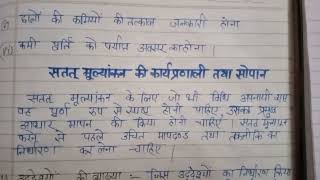 छात्रों की कमियों की तत्काल जानकारी होना
कमी पूर्ति को पर्याप्त अवसर का होना।
सतत् मूल्यांकन की कार्यप्रणाली तथा सोपान
सतत् मूल्यांकन के लिए जो भी विधि अपनायी जाए
वह पूर्ण रूप से स्पष्ट होनी चाहिए, उसका प्रमुख
आधार मापन की क्रिया होनी चाहिए। सतत् मूल्यांकन
करने से पहले उचित मापदण्ड तथा तकनीकि का
निर्धारण कर लेना चाहिए।
उद्देश्यों की व्याख्या :- जिस उद्देश्यों का निर्धारण किया